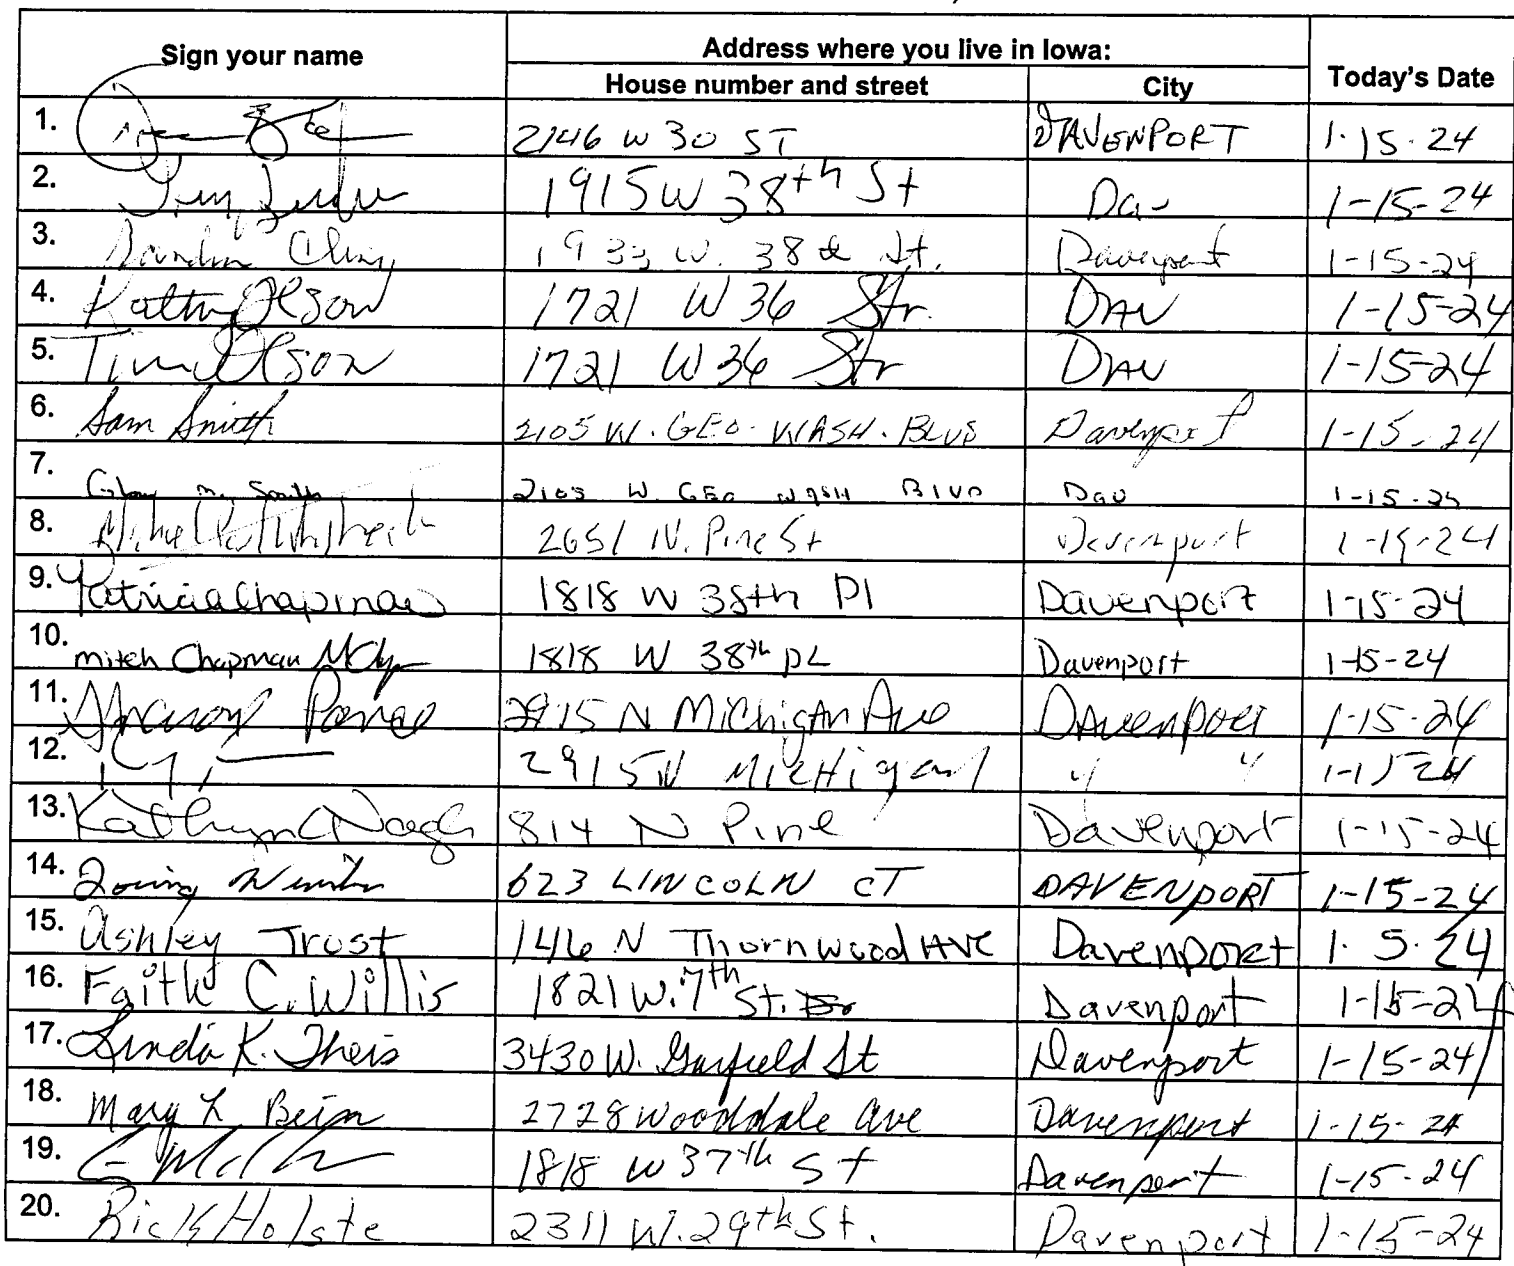 Sign your name
Address where you live in Iowa:
House number and street
City
Today's Date
1. 2146 W 30 ST DAVENPORT 1-15-24
2. 1915 W 38th St Dav 1-15-24
3. 1933 W. 38th St. Davenport 1-15-24
4. Kathy Olson 1721 W 36 Str. DAV 1-15-24
5. Tim Olson 1721 W 36 Str DAV 1-15-24
6. Sam Smith 2105 W. GEO. WASH. BLVD Davenport 1-15-24
7. Smith 2105 W. GEO WASH BLVD Dav 1-15-24
8. 2651 N. Pine St Davenport 1-15-24
9. Patricia Chapman 1818 W 38th Pl Davenport 1-15-24
10. Mitch Chapman 1818 W 38th PL Davenport 1-15-24
11. Sharon 2915 N Michigan Ave Davenport 1-15-24
12. 2915 N Michigan " " 1-15-24
13. Kathryn 814 N Pine Davenport 1-15-24
14. 623 LINCOLN CT DAVENPORT 1-15-24
15. Ashley Trost 146 N Thornwood AVE Davenport 1. 5.24
16. Faith C. Willis 1821 W. 7th St. Davenport 1-15-24
17. Linda K. Theis 3430 W. Garfield St Davenport 1-15-24
18. Mary L Bein 2728 Wooddale Ave Davenport 1-15-24
19. 1818 W 37th St Davenport 1-15-24
20. Rick Holste 2311 W. 29th St. Davenport 1-15-24